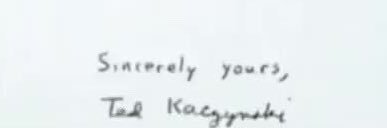 Sincerely yours,
Ted Kaczynski